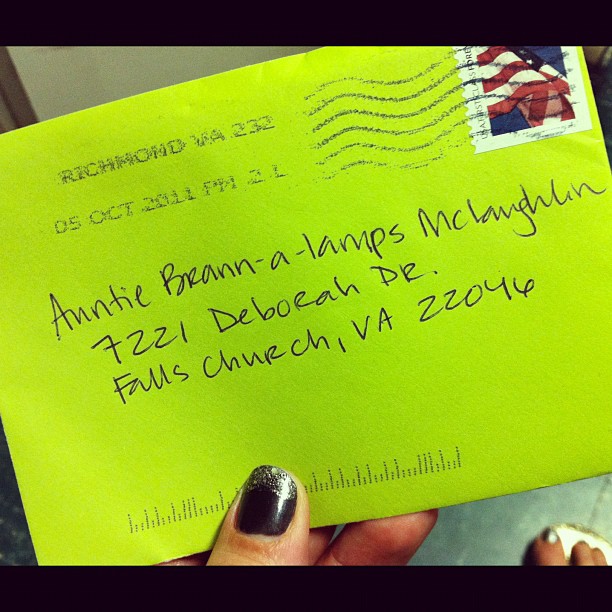 RICHMOND VA 232
05 OCT 2011 PM 2 L
Auntie Brann-a-lamps McLaughlin
7221 Deborah DR.
Falls Church, VA 22046